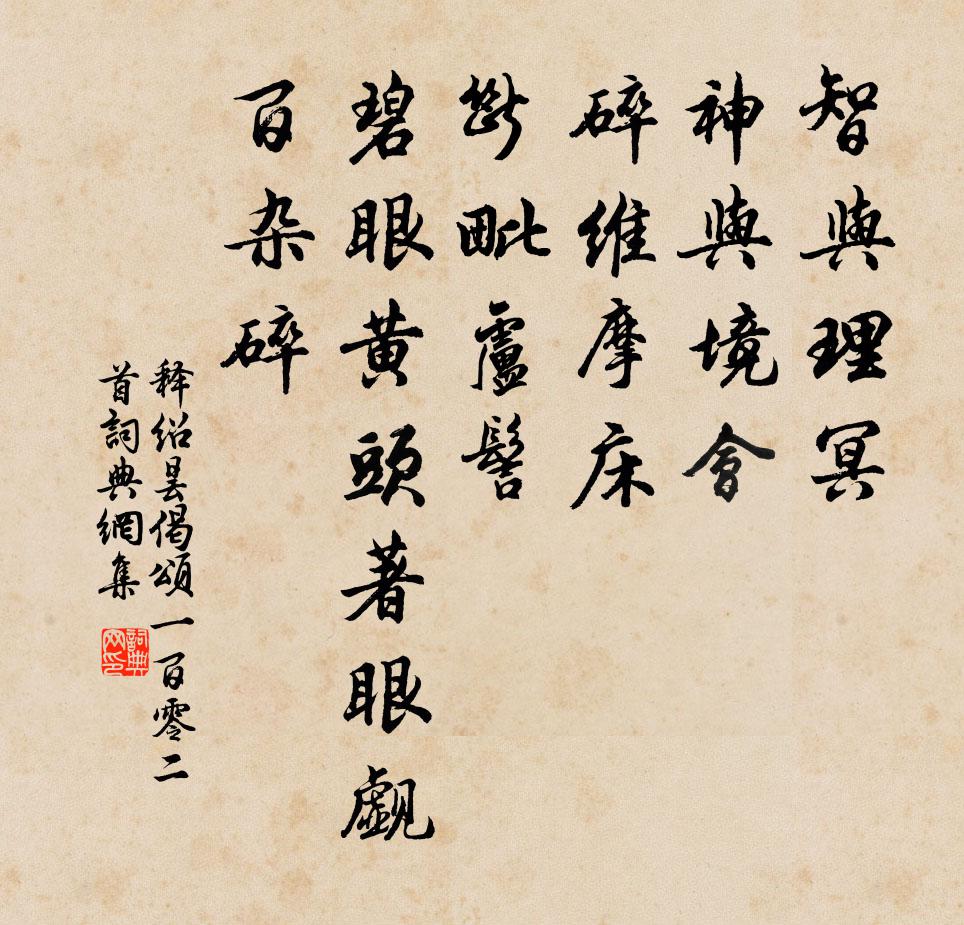 智與理冥
神與境會
碎維摩床
斷毗盧髻
碧眼黃頭著眼覷
百杂碎
释绍曇偈頌一百零二
首詞典網集
詞典
网印